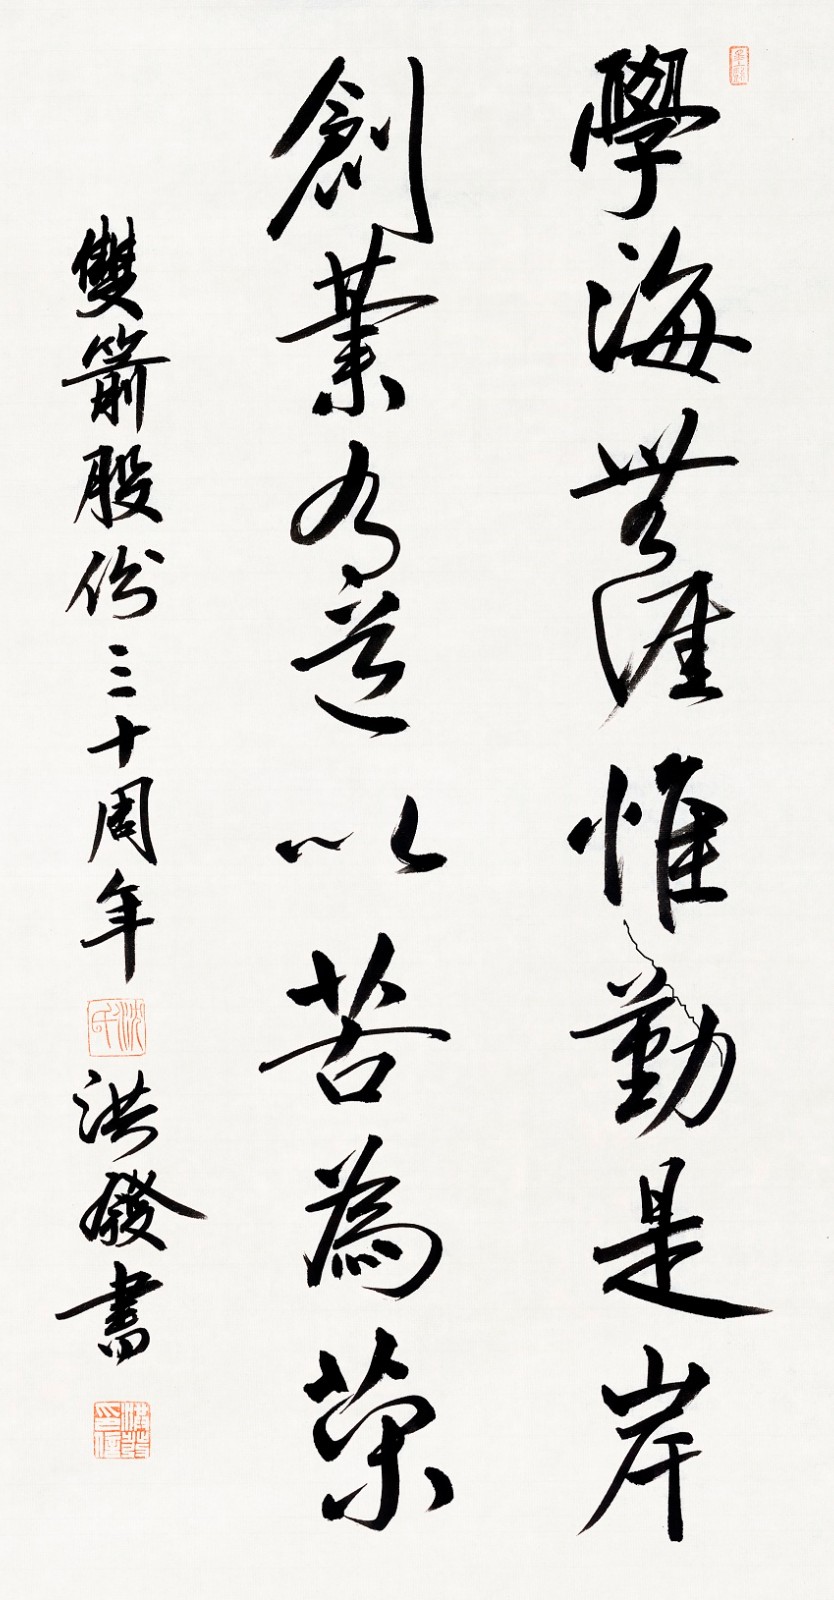 學海無涯惟勤是岸
創業有道以苦為荣
雙箭股份三十周年
沈氏
洪發書